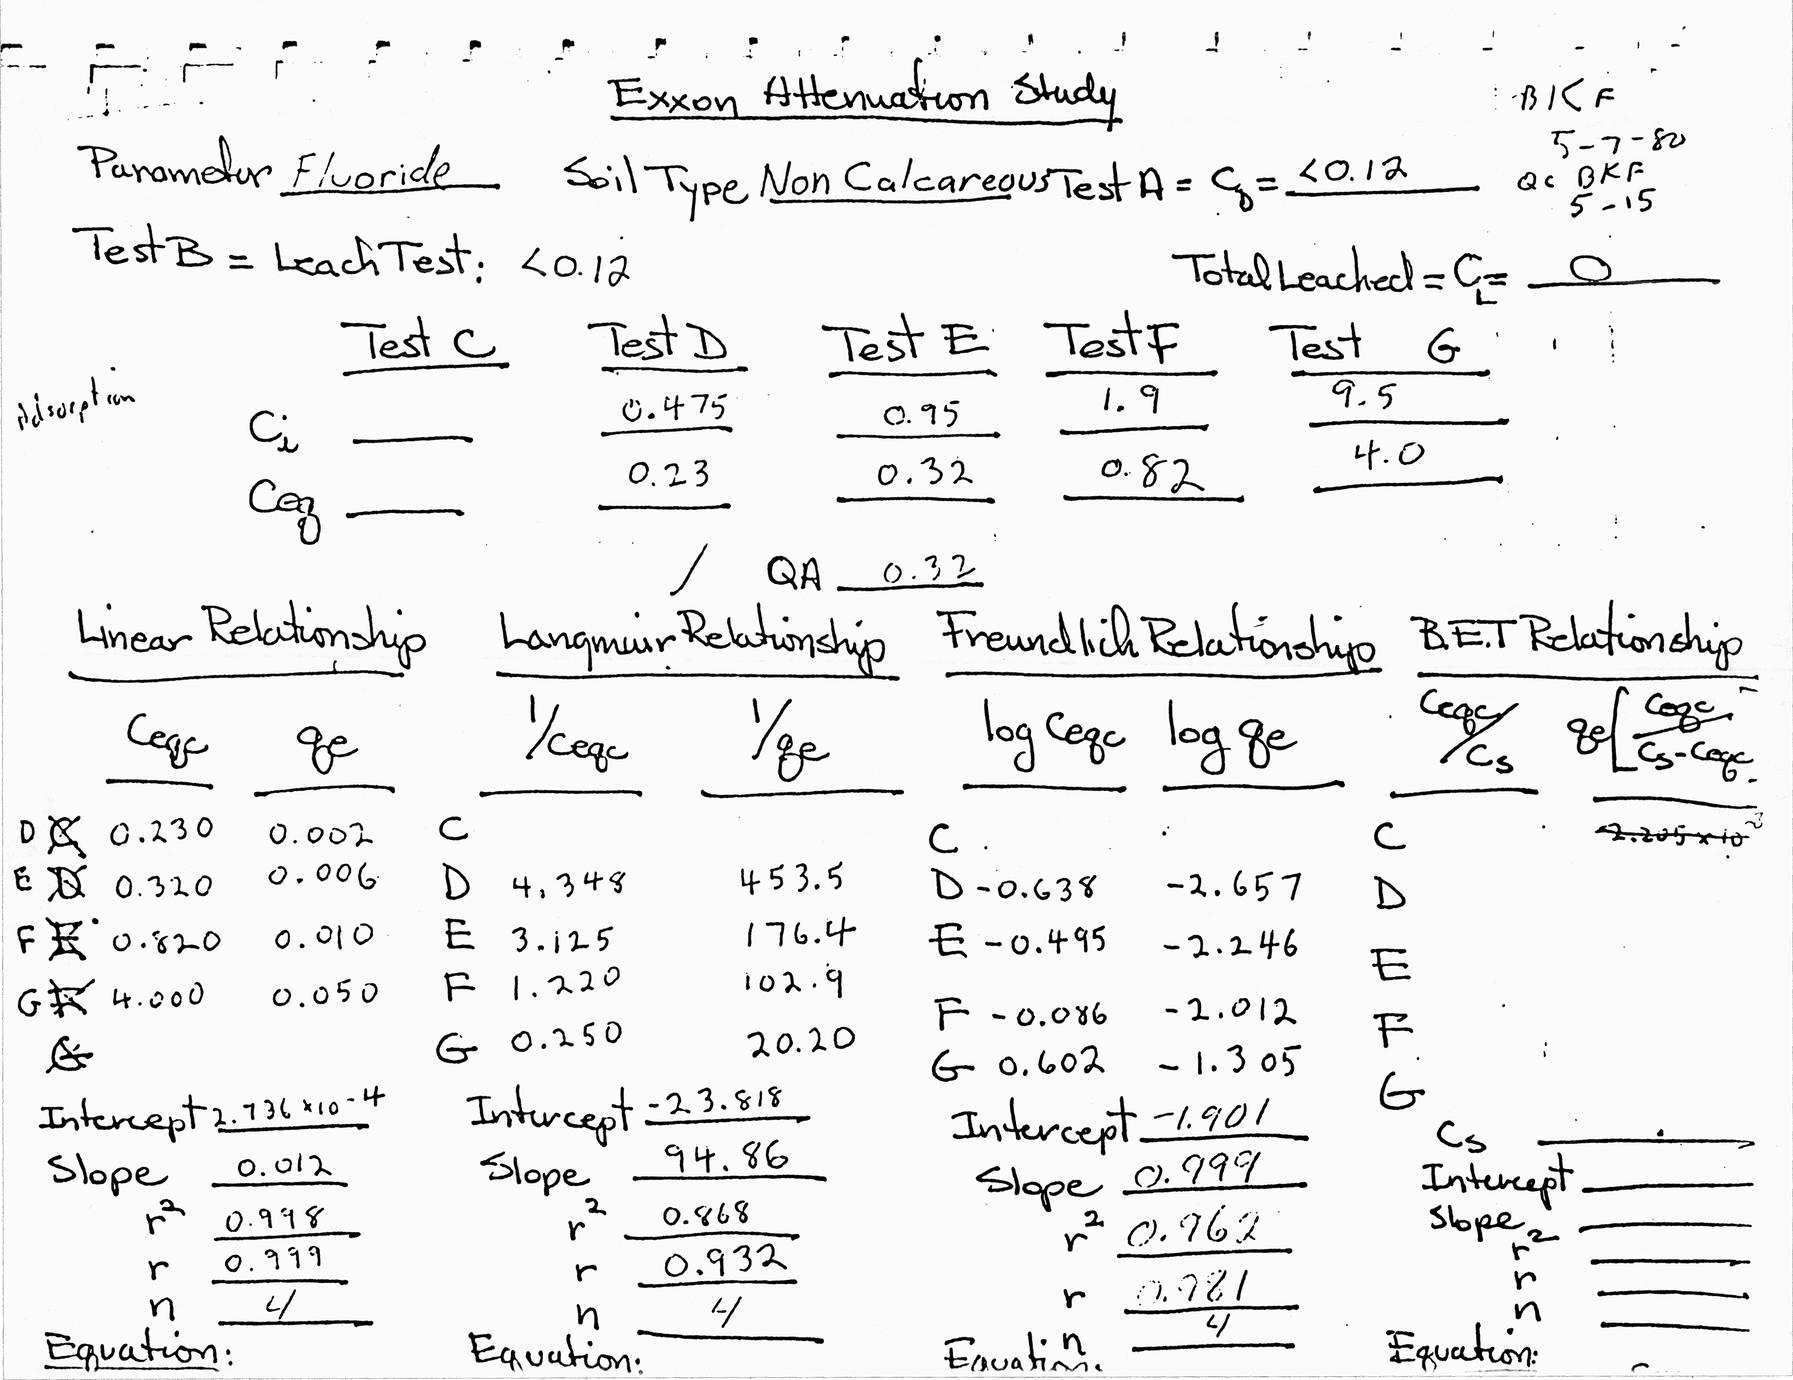 Exxon Attenuation Study
BKF
5-7-80
Parameter Fluoride Soil Type Non Calcareous Test A = Cb = <0.12
QC BKF
5-15
Test B = Leach Test: <0.12 Total Leached = CL = 0
Test C Test D Test E Test F Test G
Adsorption
Ci 0.475 0.95 1.9 9.5
Ceq 0.23 0.32 0.82 4.0
/ QA 0.32
Linear Relationship Langmuir Relationship Freundlich Relationship B.E.T Relationship
Ceqc qe 1/Ceqc 1/qe log Ceqc log qe Ceqc/Cs qe[Ceqc/Cs-Ceqc
D C 0.230 0.002 C C C 2.205 x 10-3
E D 0.320 0.006 D 4.348 453.5 D -0.638 -2.657 D
F E 0.820 0.010 E 3.125 176.4 E -0.495 -2.246 E
G F 4.000 0.050 F 1.220 102.9 F -0.086 -2.012 F
G G 0.250 20.20 G 0.602 -1.305 G
Intercept 2.736 x10-4 Intercept -23.818 Intercept -1.901 Cs
Slope 0.012 Slope 94.86 Slope 0.999 Intercept
r2 0.998 r2 0.868 r2 0.962 Slope
r 0.999 r 0.932 r 0.981 r2
n 4 n 4 n 4 r
n
Equation: Equation: Equation: Equation: